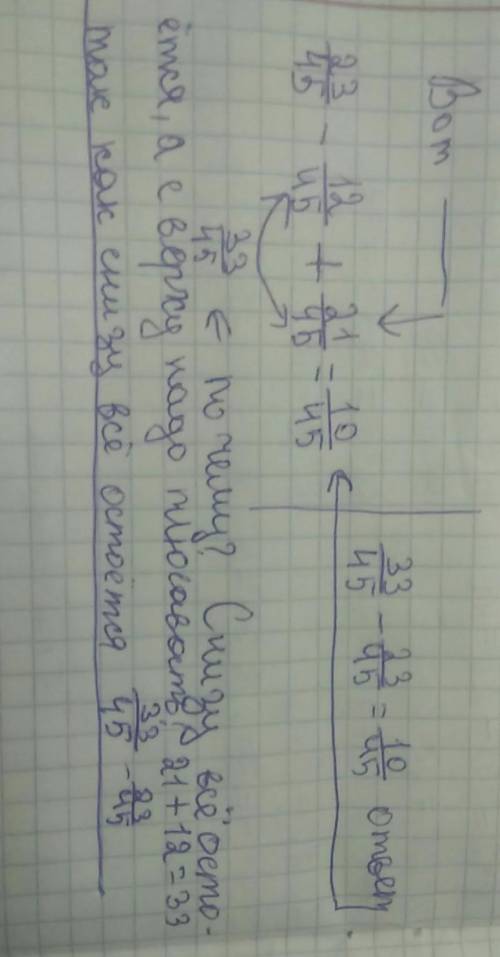 Вот
23/45 - 12/45 + 21/45 = 10/45
33/45 - 23/45 = 10/45 ответ
33/45 ← почему? Снизу всё осто-
ётся, а с верху надо плюсавать, 21+12=33
так как снизу всё остоётся 33/45 - 23/45